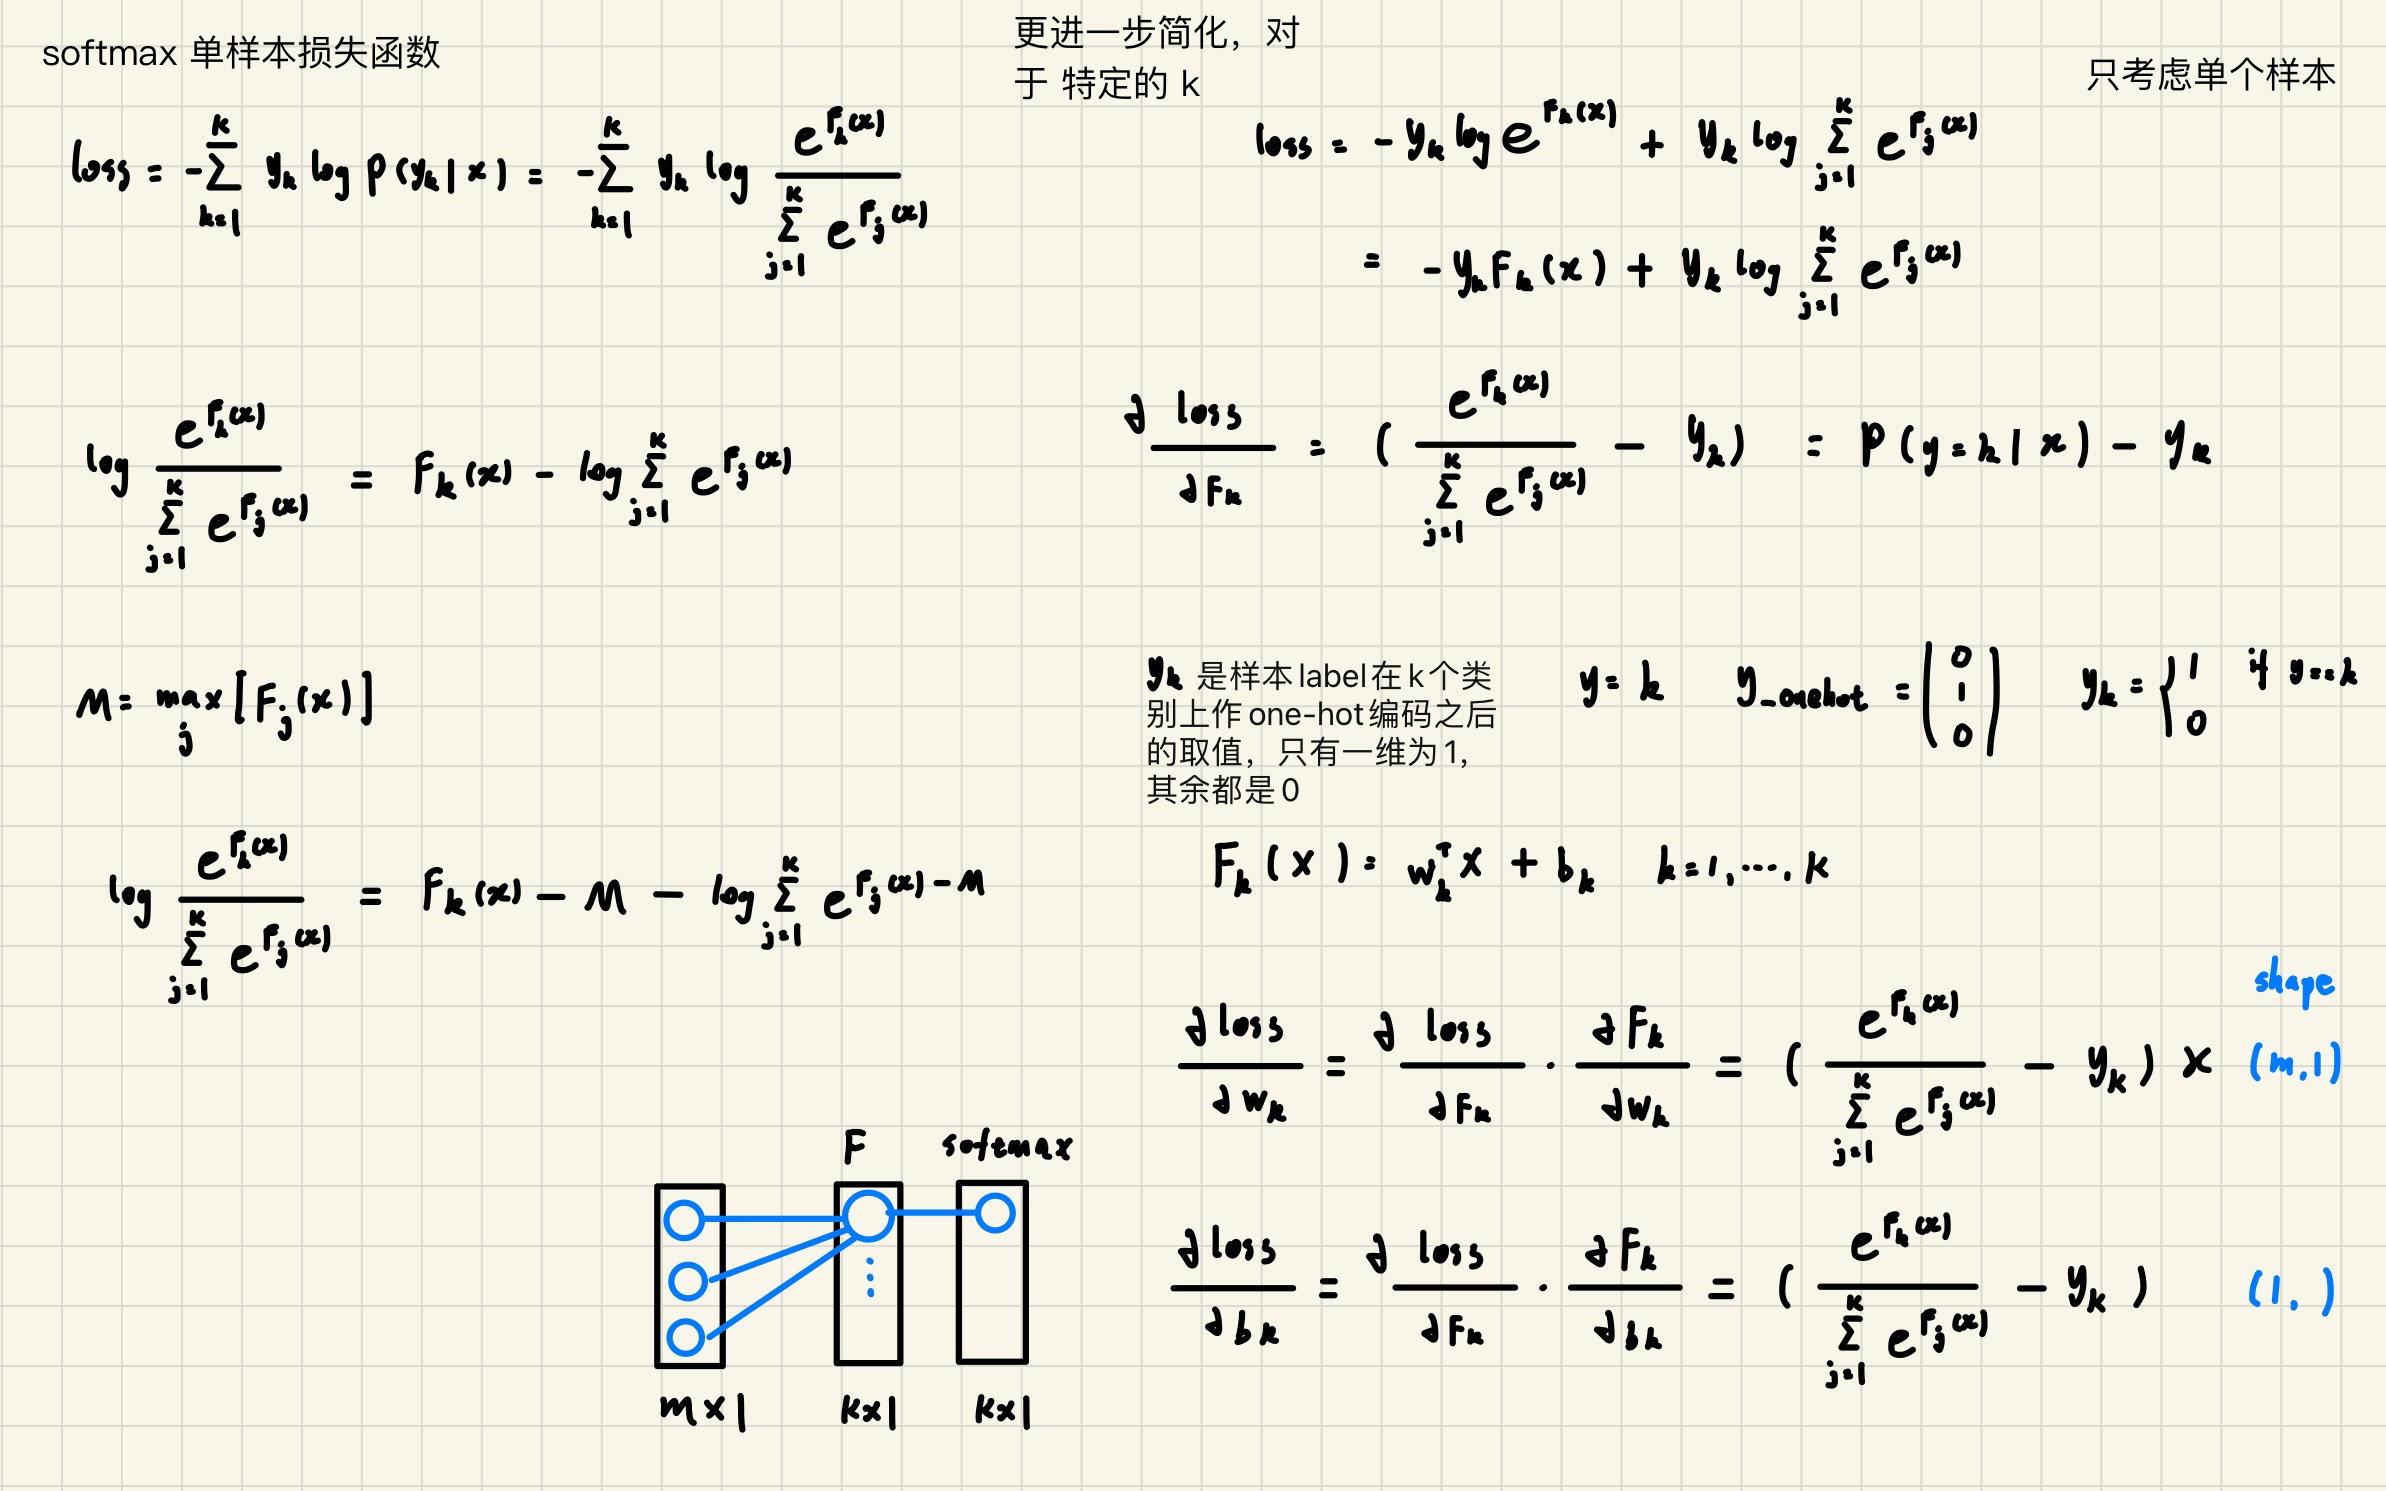 softmax 单样本损失函数
loss = -∑_{k=1}^{K} y_k log P(y_k|x) = -∑_{k=1}^{K} y_k log \frac{e^{F_k(x)}}{∑_{j=1}^{K} e^{F_j(x)}}
log \frac{e^{F_k(x)}}{∑_{j=1}^{K} e^{F_j(x)}} = F_k(x) - log ∑_{j=1}^{K} e^{F_j(x)}
M = max_j [F_j(x)]
log \frac{e^{F_k(x)}}{∑_{j=1}^{K} e^{F_j(x)}} = F_k(x) - M - log ∑_{j=1}^{K} e^{F_j(x) - M}
F softmax
m×1 k×1 k×1
更进一步简化，对
于 特定的 k
只考虑单个样本
loss = -y_k log e^{F_k(x)} + y_k log ∑_{j=1}^{K} e^{F_j(x)}
= -y_k F_k(x) + y_k log ∑_{j=1}^{K} e^{F_j(x)}
\frac{∂ loss}{∂ F_k} = ( \frac{e^{F_k(x)}}{∑_{j=1}^{K} e^{F_j(x)}} - y_k ) = P(y=k|x) - y_k
y_k 是样本 label 在 k 个类
别上作 one-hot 编码之后
的取值，只有一维为 1,
其余都是 0
y = k y_-onehot = (0 1 0) y_k = { 1 if y==k
0
F_k(x) = w_k^T x + b_k k=1, ...., K
shape
\frac{∂ loss}{∂ w_k} = \frac{∂ loss}{∂ F_k} · \frac{∂ F_k}{∂ w_k} = ( \frac{e^{F_k(x)}}{∑_{j=1}^{K} e^{F_j(x)}} - y_k ) x (m,1)
\frac{∂ loss}{∂ b_k} = \frac{∂ loss}{∂ F_k} · \frac{∂ F_k}{∂ b_k} = ( \frac{e^{F_k(x)}}{∑_{j=1}^{K} e^{F_j(x)}} - y_k ) (1, )